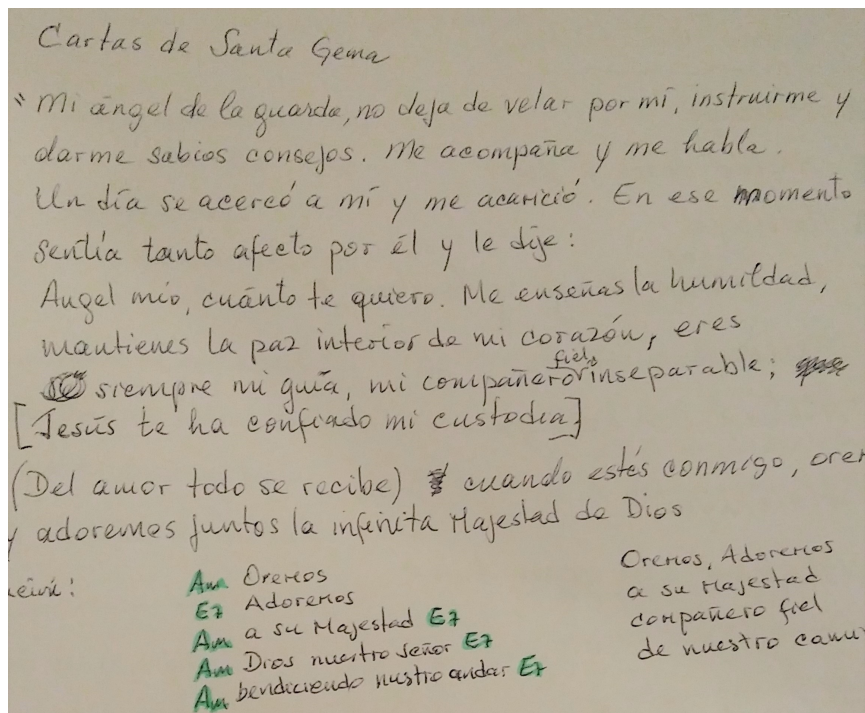 Cartas de Santa Gema
"Mi ángel de la guarda, no deja de velar por mí, instruirme y
darme sabios consejos. Me acompaña y me habla.
Un día se acercó a mí y me acarició. En ese momento
sentía tanto afecto por él y le dije:
Angel mío, cuánto te quiero. Me enseñas la humildad,
mantienes la paz interior de mi corazón, eres
siempre mi guía, mi compañero fiel inseparable;
[Jesús te ha confiado mi custodia]
(Del amor todo se recibe) cuando estés conmigo, orem
y adoremos juntos la infinita Majestad de Dios
Am Oremos
E7 Adoremos
Am a su Majestad E7
Am Dios nuestro Señor E7
Am bendiciendo nustro andar E7
Oremos, Adoremos
a su Majestad
compañero fiel
de nuestro cami